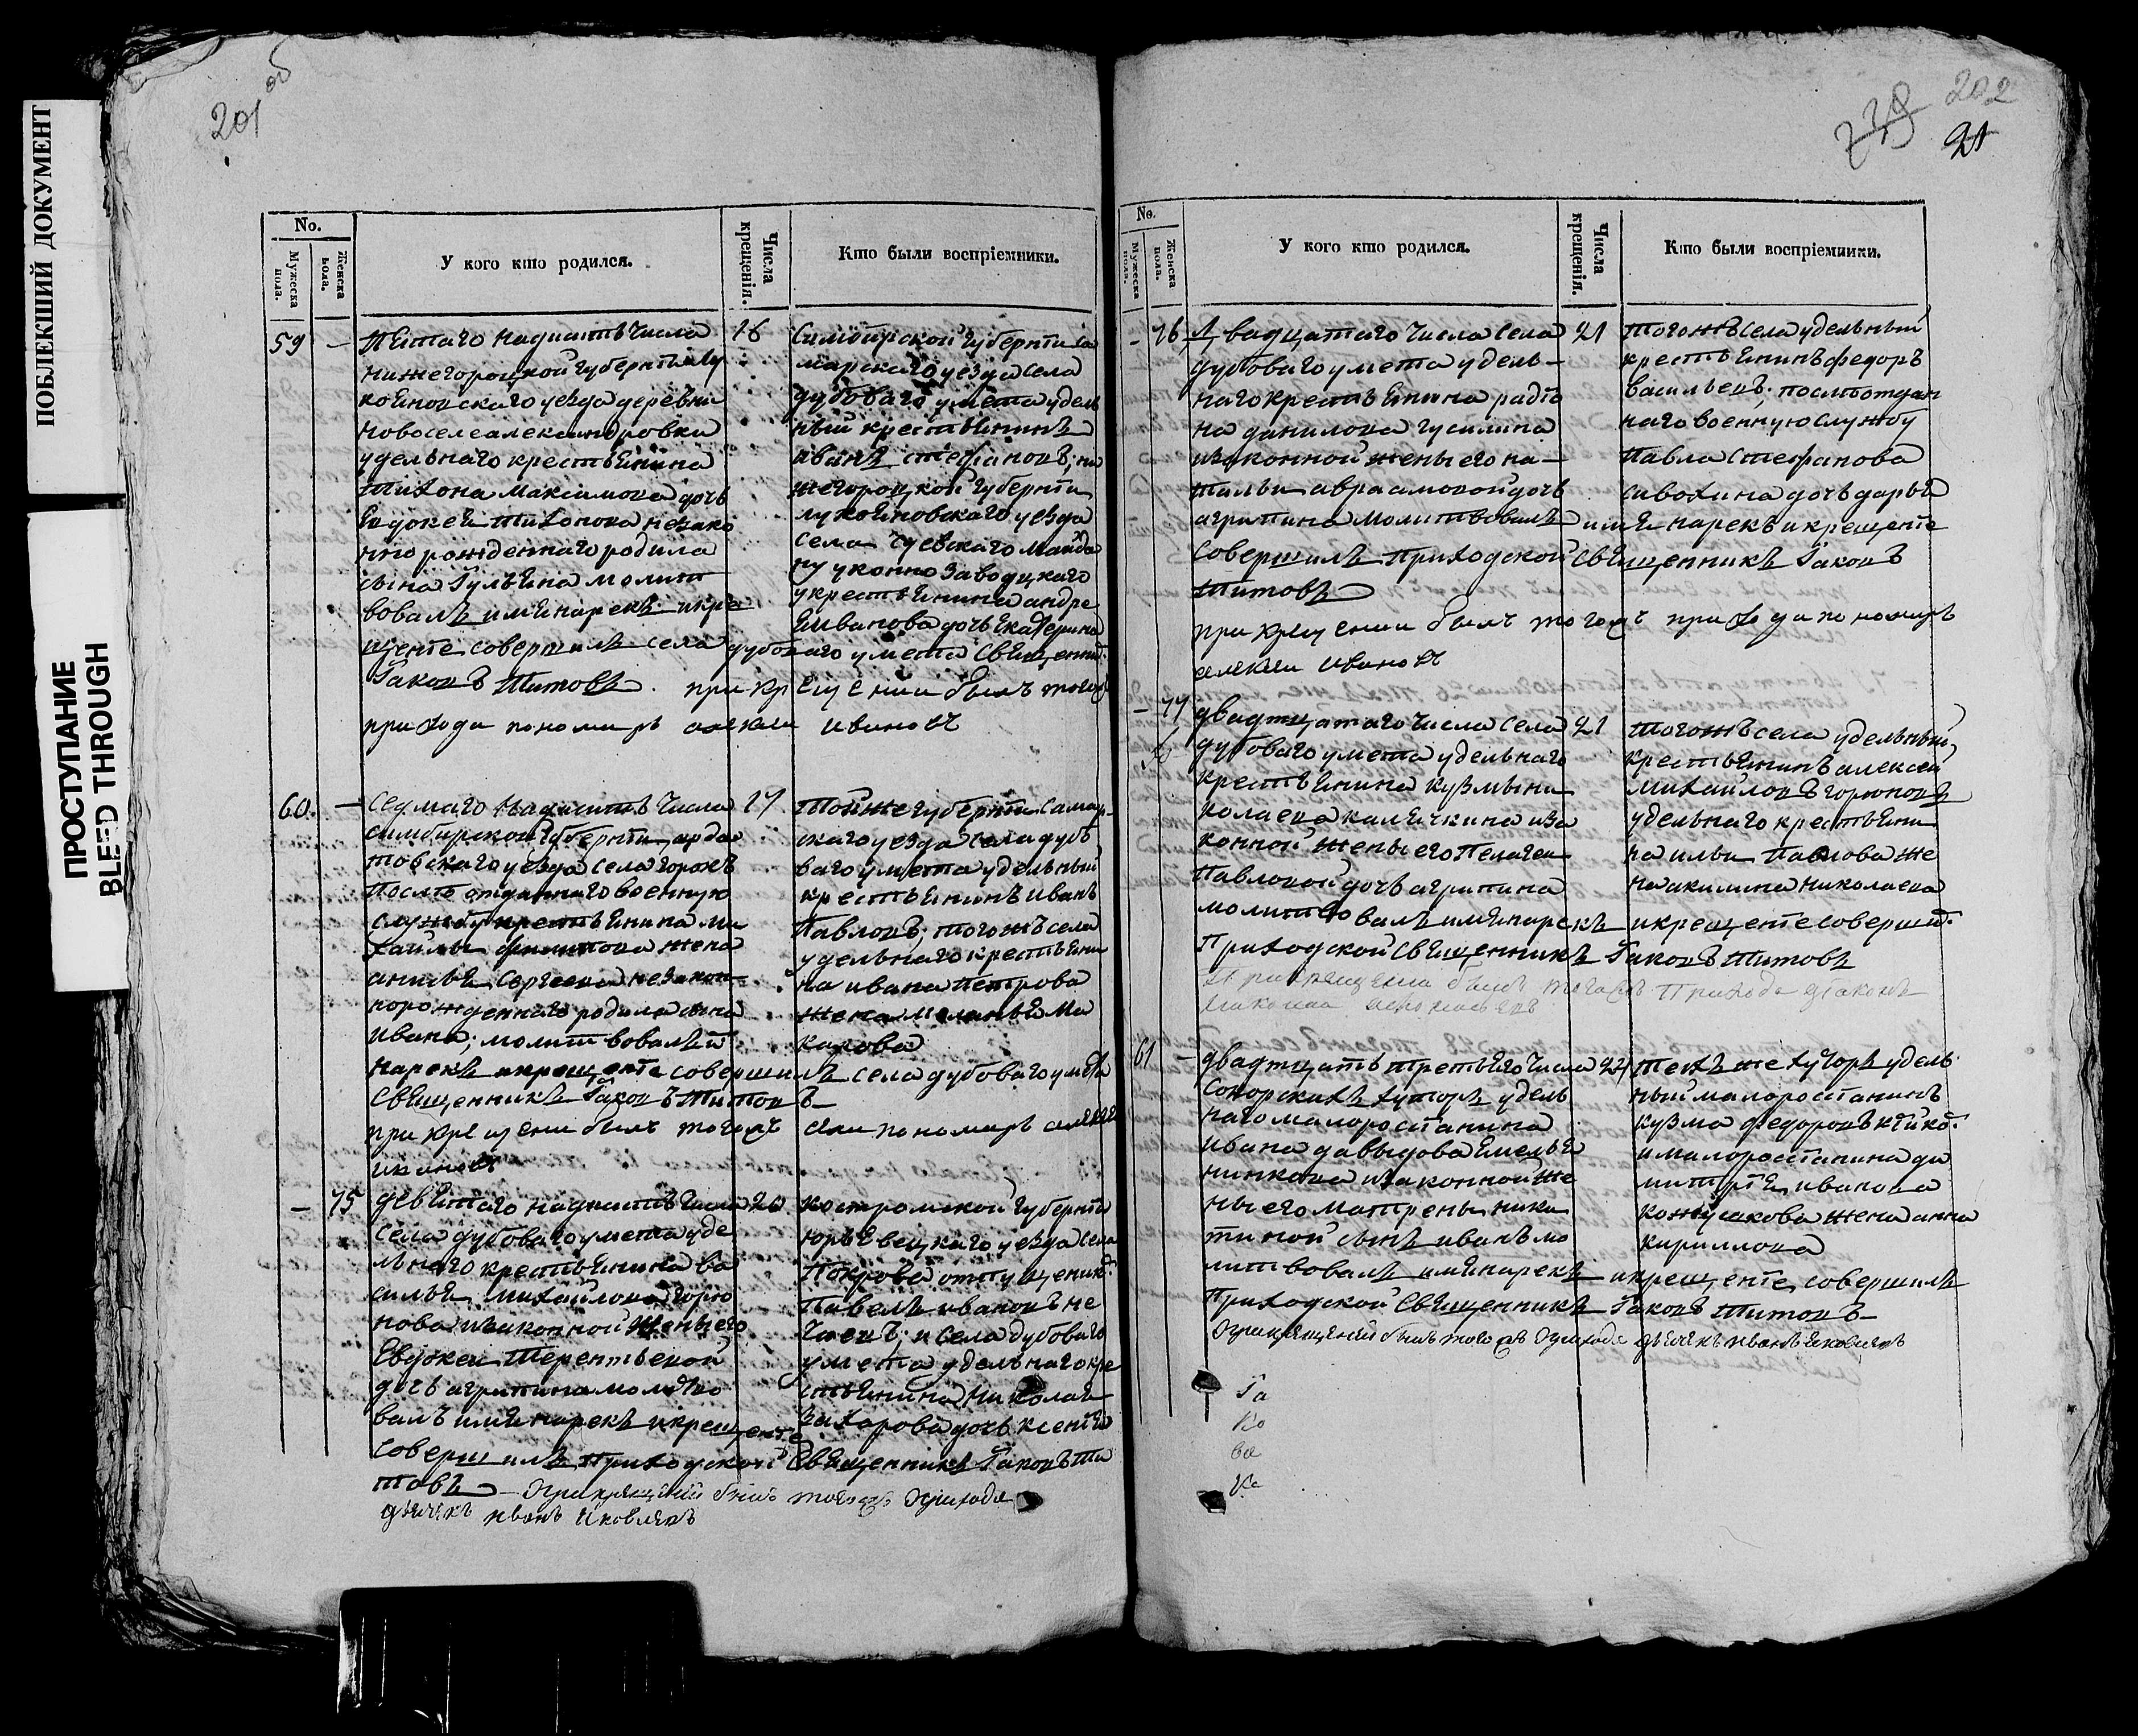 ПОБЛЕКШИЙ ДОКУМЕНТ
ПРОСТУПАНИЕ
BLEED THROUGH
201 об
No.
Мужеска пола.
Женска пола.
У кого кто родился.
Числа крещенія.
Кто были воспріемники.
59 — Пятаго надцать числа 16
нижегороцкой губерніи лу
кояновскаго уезда деревни
новоселеалександровки
удельнаго крестьянина
Тихона Максимова дочь
Евдокея Тихонова незако
нно рожденнаго родила
сына Гульяна молит
вовалъ имя нарекъ и кре
щеніе совершилъ села дубоваго умета священникъ
Іаковъ Титовъ. при крещении былъ тогожъ
прихода пономарь алексеи ивановъ
Симбирской губерніи са
марскаго уезда села
дубоваго умета удель
ный крестьянинъ
иванъ стефановъ; ни
жегороцкой губерніи
лукояновскаго уезда
села
ну конно заводцкаго
крестьянина андре
я иванова дочь екатерина
60. — Седмаго надцать числа 17
симбирской губерніи арда
товскаго уезда села
после отданнаго военную
службу крестьянина ми
хайлы филипова жена
анисья Сергеева незакон
норожденнаго родила сына
Ивана; молитвовалъ и
нарекъ и крещеніе совершилъ села дубоваго умета
Священникъ Іаковъ Титовъ
при крещени былъ тогожъ села пономарь алексеи
ивановъ
Той же губерніи самар
скаго уезда села дубо
ваго умета удельный
крестьянинъ иванъ
Павловъ; тогожъ села
удельнаго крестьяни
на ивана Петрова
жена меланья Ма
карова
— 75 девятаго надцать числа 20
села дубоваго умета уде
льнаго крестьянина ва
силья михайлова горю
нова изаконной жены его
Евдокеи Терентьевой
дочь агрипина молитво
валъ имя нарекъ и крещеніе
совершилъ приходской Священникъ Іаковъ Ти
товъ — При крещении былъ тогожъ прихода
дьячекъ иванъ яковлевъ
костромской губерніи
юрьевецкаго уезда села
Покрова отпущеникъ
Павелъ ивановъ не
чаевъ; и села дубоваго
умета удельнаго кре
стьянина николая
захарова дочь ксенія
202
21
No.
Мужеска пола.
Женска пола.
У кого кто родился.
Числа крещенія.
Кто были воспріемники.
— 76 Двадцатаго числа села 21
дубоваго умета удель
наго крестьянина радіо
на данилова гусилина
изаконной жены его на
тальи авраамовой дочь
агрипина молитвовалъ имя нарекъ и крещеніе
совершилъ Приходской Священникъ Іаковъ
Титовъ
при крещении былъ тогожъ прихода пономарь
алексеи ивановъ
тогожъ села удельный
крестьянинъ федоръ
васильевъ; после отдан
наго военную службу
Павла Стефанова
дочь дарья
— 77 двадцатаго числа села 21
дубоваго умета удельнаго
крестьянина кузмы ни
колаева калячкина иза
конной жены его Пелагеи
Павловой дочь агрипина
молитвовалъ имя нарекъ и крещеніе совершилъ
Приходской Священникъ Іаковъ Титовъ
При крещении былъ тогожъ Прихода діаконъ
тогожъ села удельный
крестьянинъ алексей
михайловъ горюновъ
удельнаго крестьяни
на ильи Павлова же
на акилина николаева
61 — двадцать третьяго числа 24
хуторъ удель
наго малоросіянина
ивана давыдова емелья
ненкова изаконной же
ны его матрены ники
тиной сынъ иванъ мо
литвовалъ имя нарекъ и крещеніе совершилъ
Приходской Священникъ Іаковъ Титовъ
При крещении былъ тогожъ прихода дьячекъ иванъ яковлевъ
техъ же хуторъ удель
ный малоросіянинъ
кузма федоровъ
и малоросіянина ди
митрія иванова
кожушкова жена анна
кириллова
Га
ко
ва